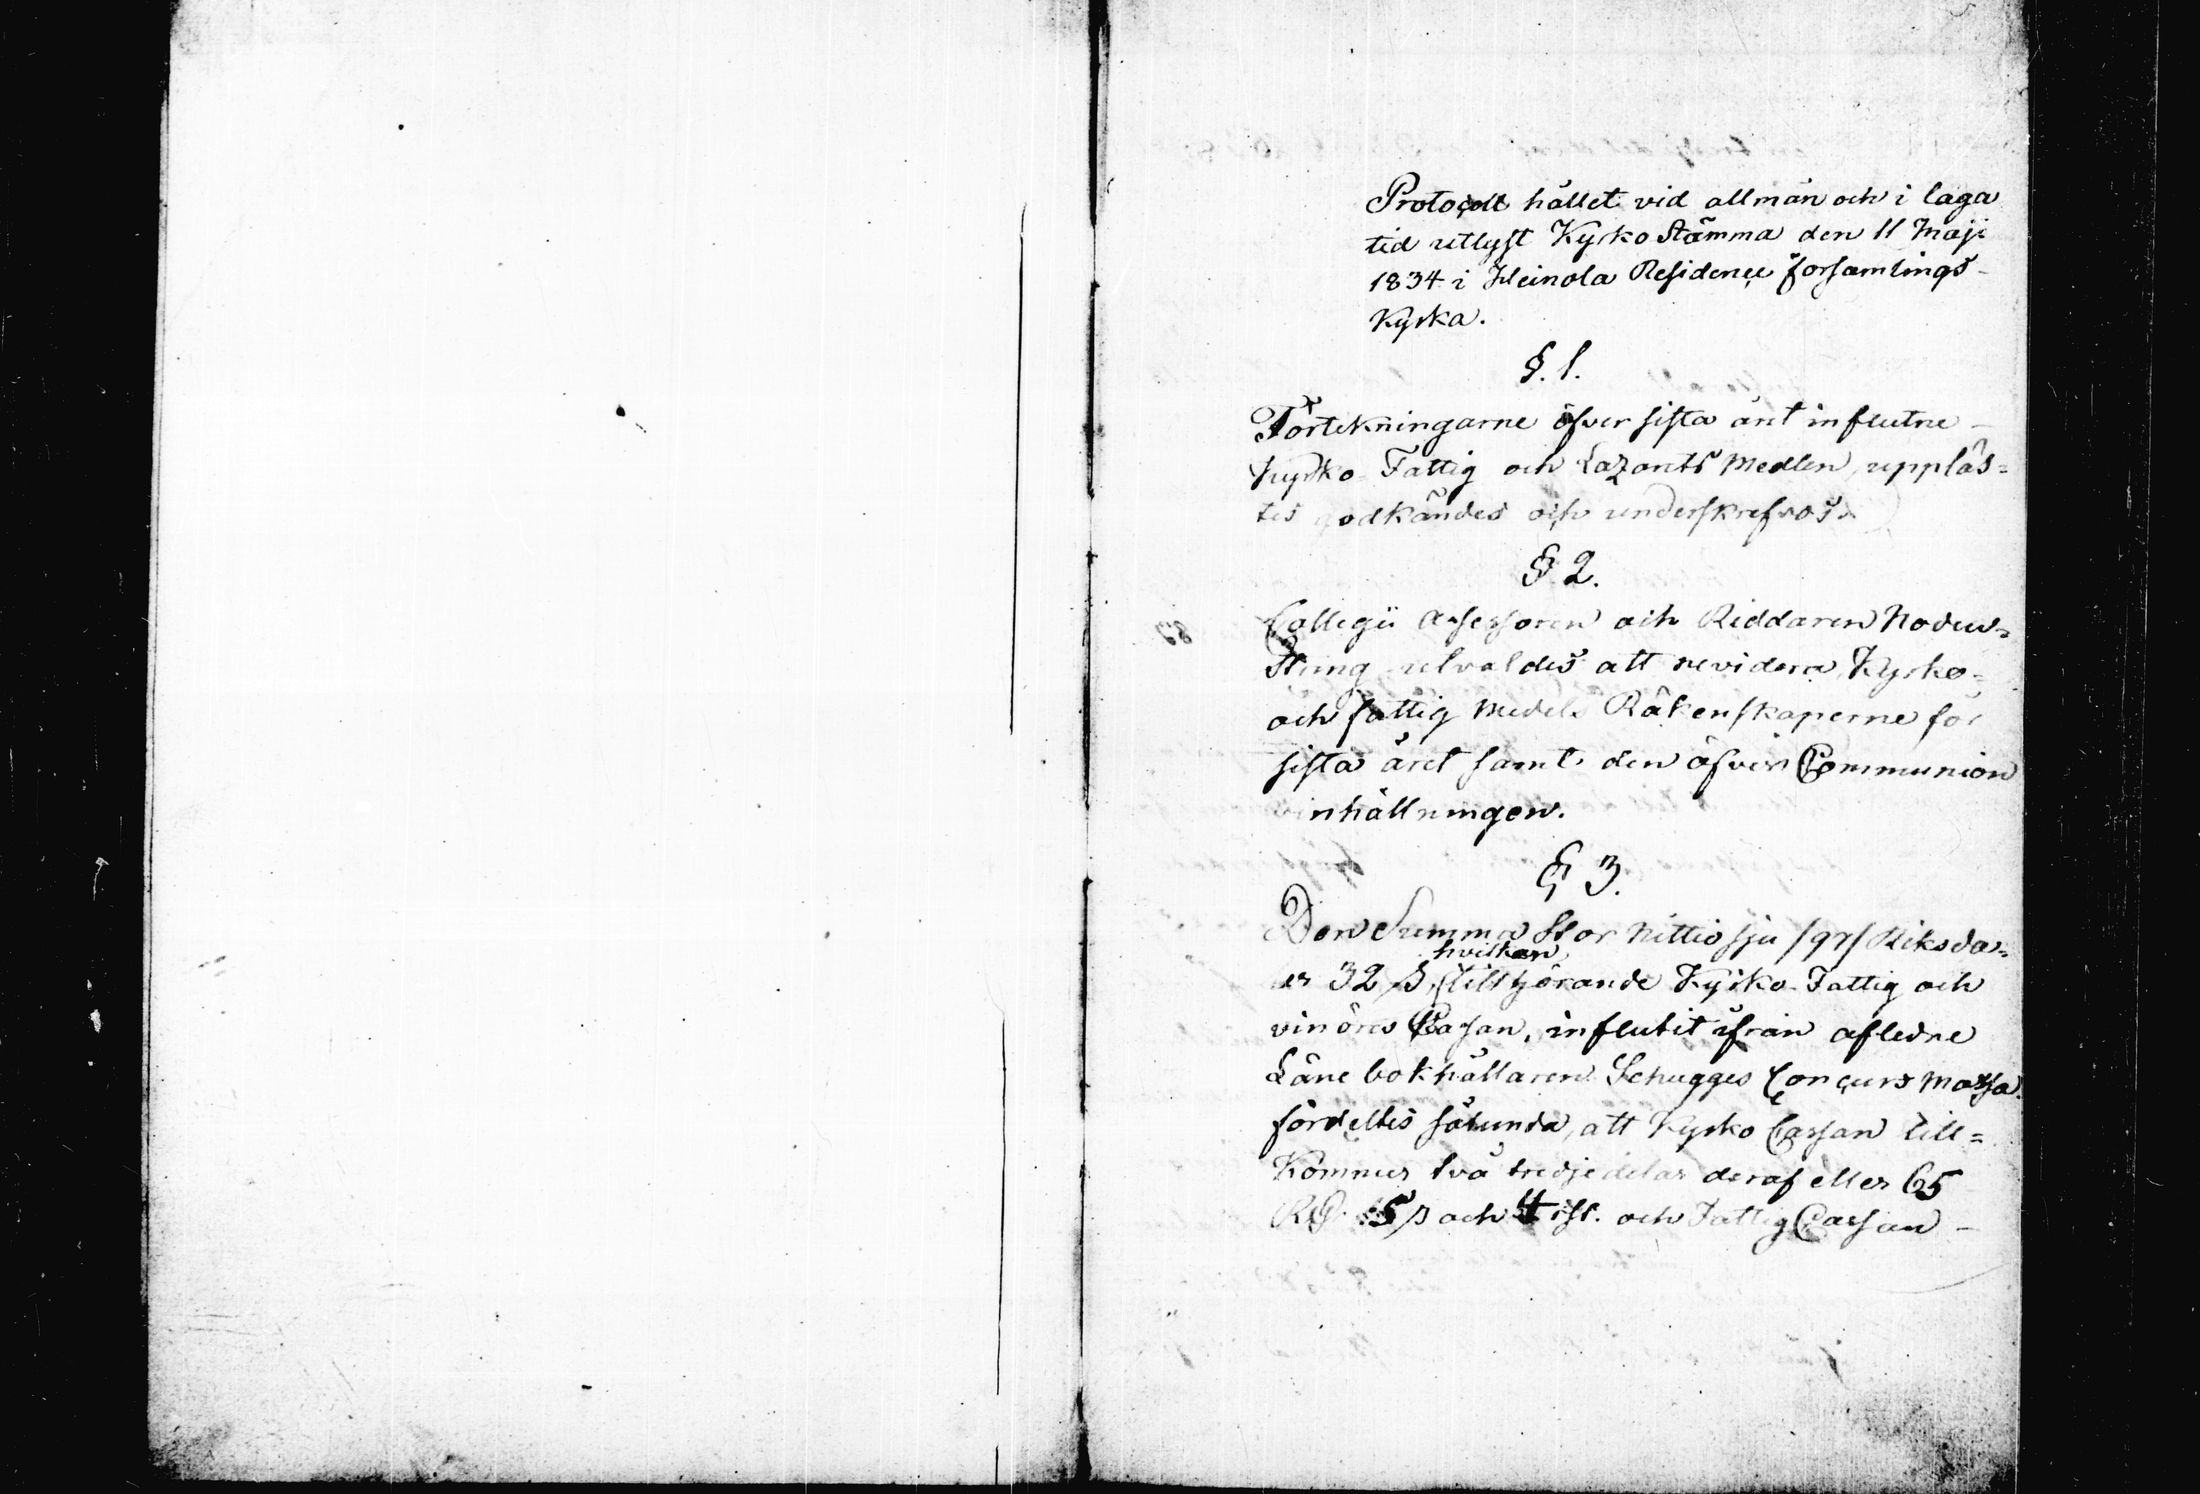 Protocoll hållet vid allmän och i laga
tid utlyst Kyrko Stämma den 11 Maji
1834 i Heinola Residence församlings-
Kyrka.
§. 1.
Förtekningarne öfver sista året influtne -
Kyrko- Fattig och Lazarets Medlen, uppläs=
tes godkändes och underskrefvos.
§ 2.
Collegii Assessoren och Riddaren
utvaldes att revidera Kyrko-
och fattig Medels Räkenskaperne för
sista året samt den öfver Communion
vinhållningen.
§ 3.
Den Summa stor Nittio sju /97/ Riksda=
ler 32 s, hvilken tillhörande Kyrko- Fattig och
vinöres Cassan, influtit ifrån afledne
Läne bokhållaren Schugges Concurs Massa.
fördeltes sålunda, att Kyrko Cassan till=
Kommer två tredjedelar deraf eller 65
RD 5 s och 4 rst. och Fattig Cassan -